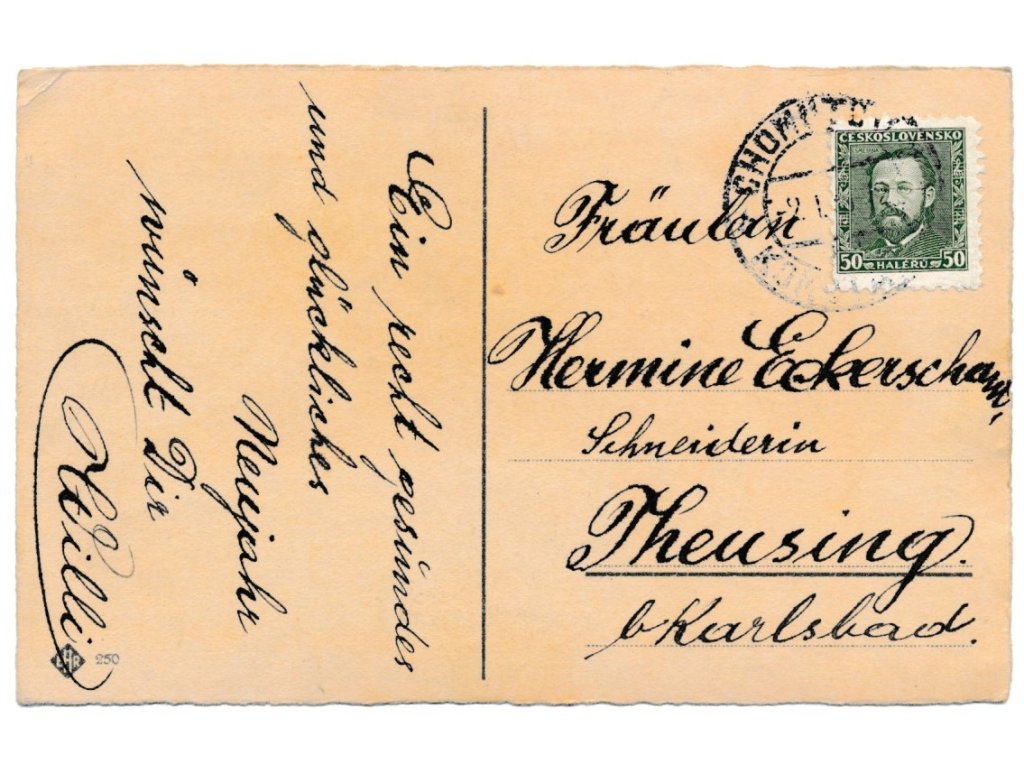 Ein recht gesundes
und glückliches
Neujahr
wünscht Dir
Willi
EHR 250
CHOMUTOV
2.I.
ČESKOSLOVENSKO
SMETANA
50 HALÉRŮ 50
Fräulein
Hermine Eckerscham,
Schneiderin
Theusing.
b Karlsbad.